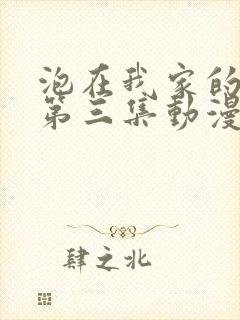 泡在我家的
第三集動漫
肆之北